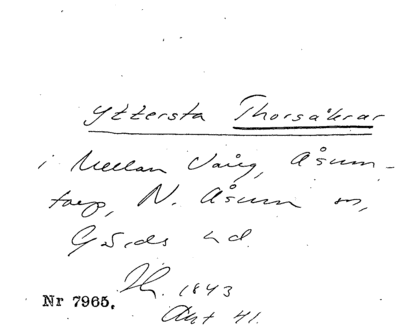 Yttersta Thorsåkrar
i Mellan Vång, Åsum-
torp, N. Åsum sn,
Gärds hd.
1843
Akt 41.
Nr 7965.